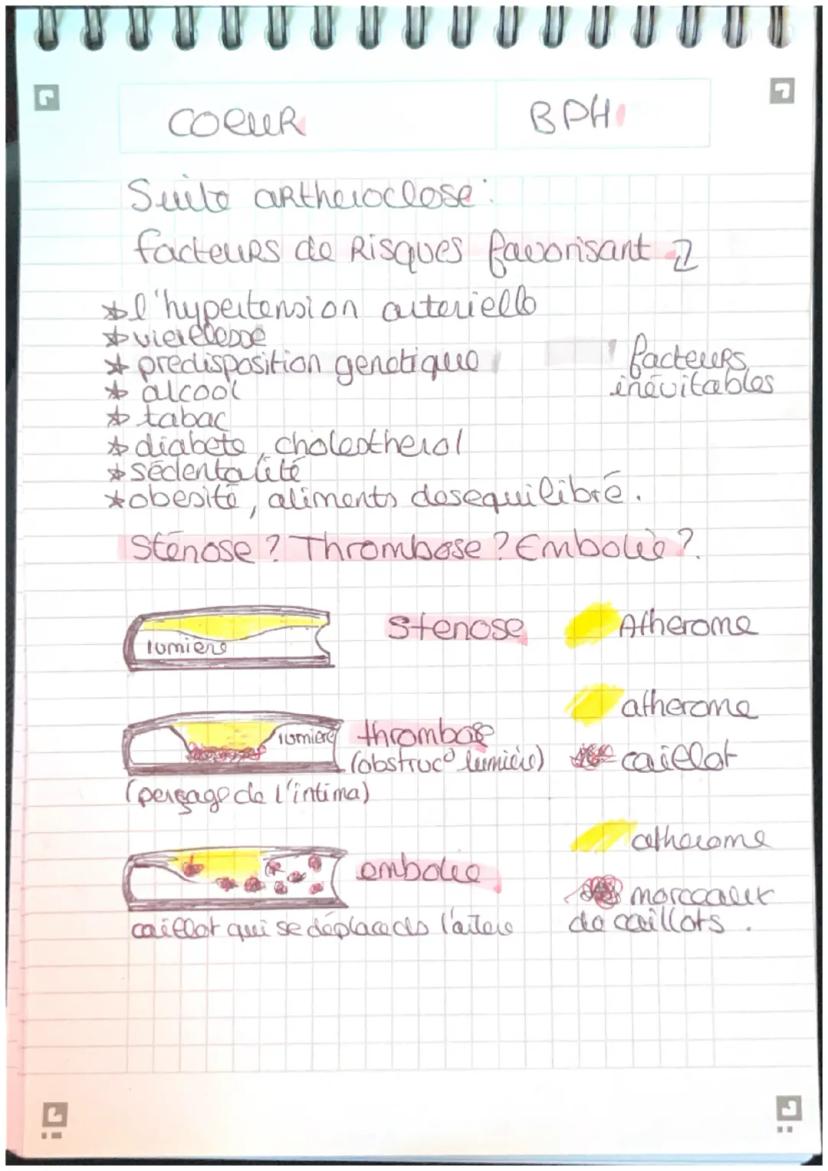 COEUR BPH
Suite artheroclose:
facteurs de Risques favorisant
*l'hypertension arterielle
*vieiellesse
*predisposition genetique facteurs
*alcool inévitables
*tabac
*diabete, cholestherol
*sédentalité
*obesité, aliments desequilibré.
Sténose ? Thrombose ? Embolie ?
lumiere Sténose Atherome
lumiere thrombose atherome
(obstruc° lumière) caillot
(perçage de l'intima)
embolie atherome
morceaux
caillot qui se déplace ds l'artere de caillots.